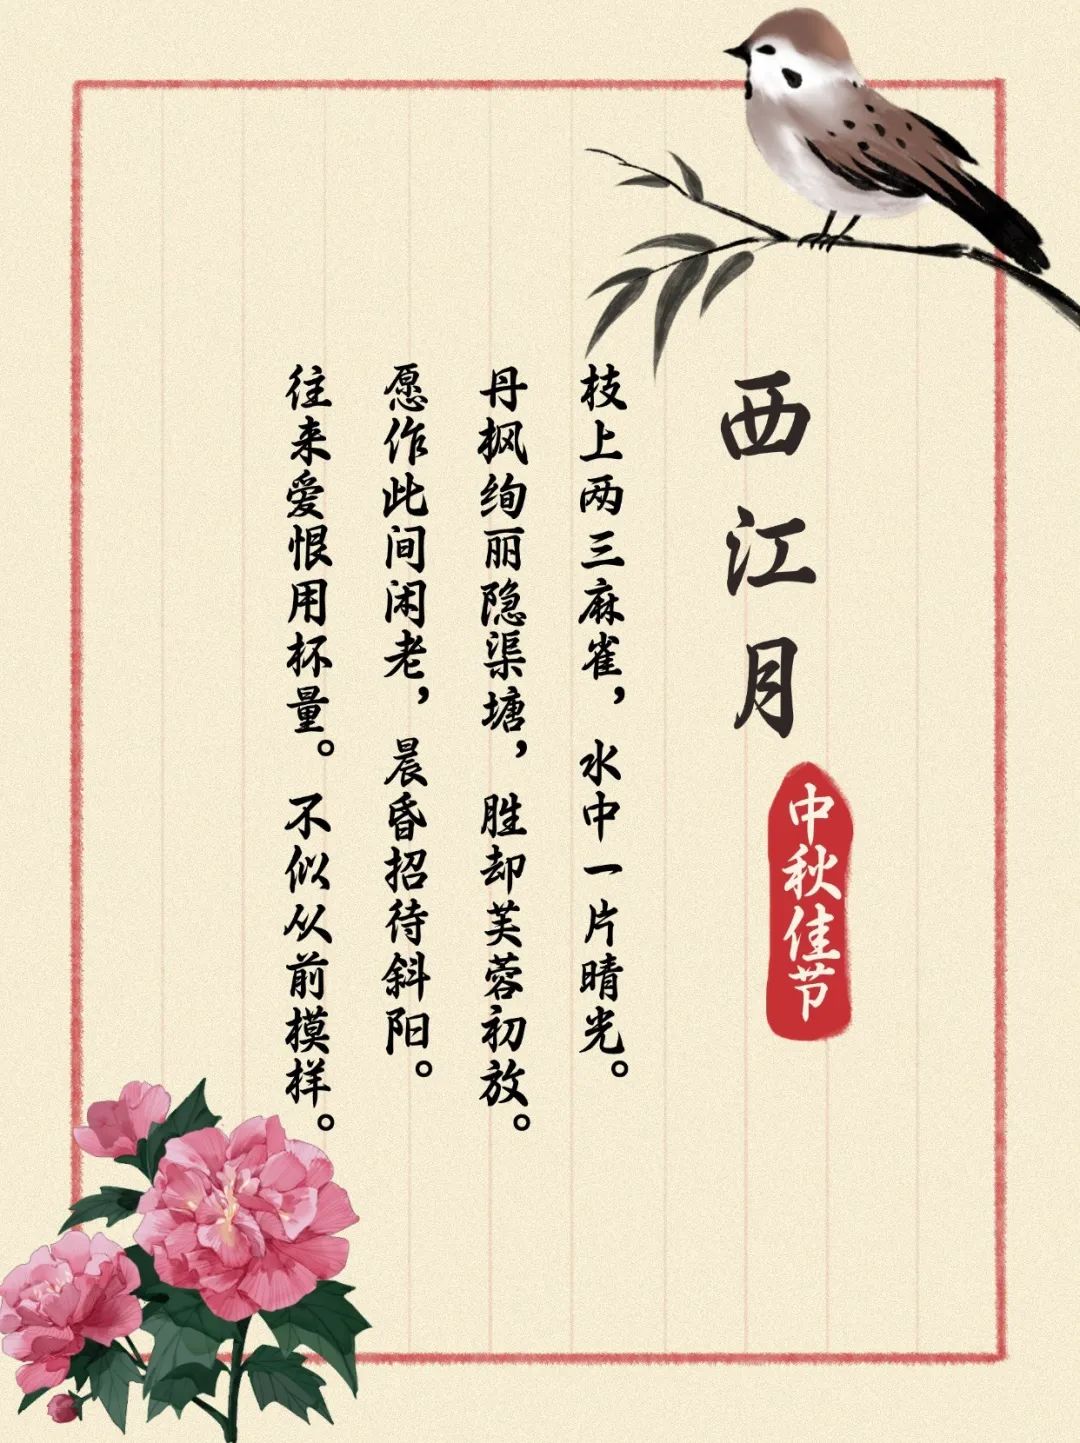 西江月
中秋佳节
枝上两三麻雀，水中一片晴光。
丹枫绚丽隐渠塘，胜却芙蓉初放。
愿作此间闲老，晨昏招待斜阳。
往来爱恨用杯量。不似从前模样。